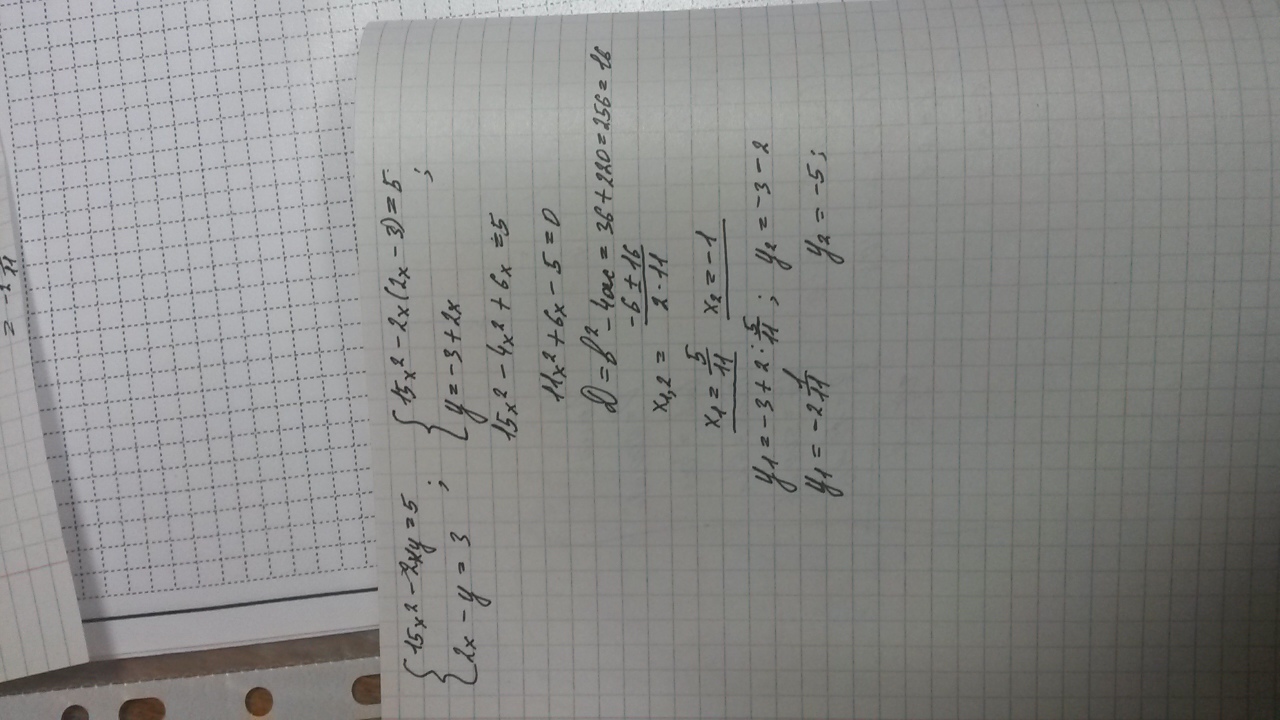 { 15x² - 2xy = 5
{ 2x - y = 3 ;
{ 15x² - 2x(2x - 3) = 5
{ y = -3 + 2x ;
15x² - 4x² + 6x = 5
11x² + 6x - 5 = 0
D = b² - 4ac = 36 + 220 = 256 = 16
x₁,₂ = (-6 ± 16)/(2·11)
x₁ = 5/11 x₂ = -1
y₁ = -3 + 2·5/11 ; y₂ = -3 - 2
y₁ = -2 1/11 y₂ = -5 ;